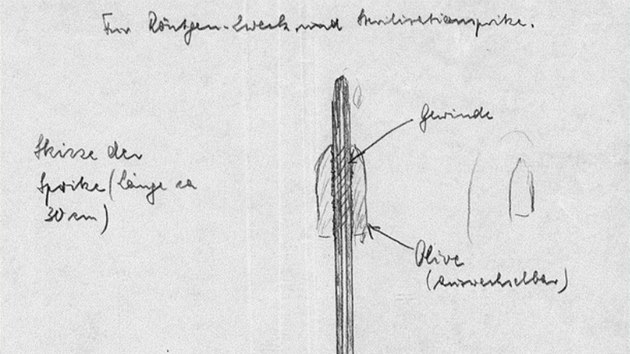 Für Röntgen-Zweck und Sterilisationspritze.
Gewinde
Skizze der
Spritze (Länge ca
30 cm)
Olive
(auswechselbar)